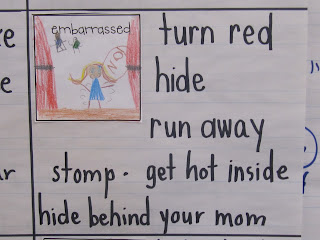 embarrassed
turn red
hide
run away
stomp · get hot inside
hide behind your mom